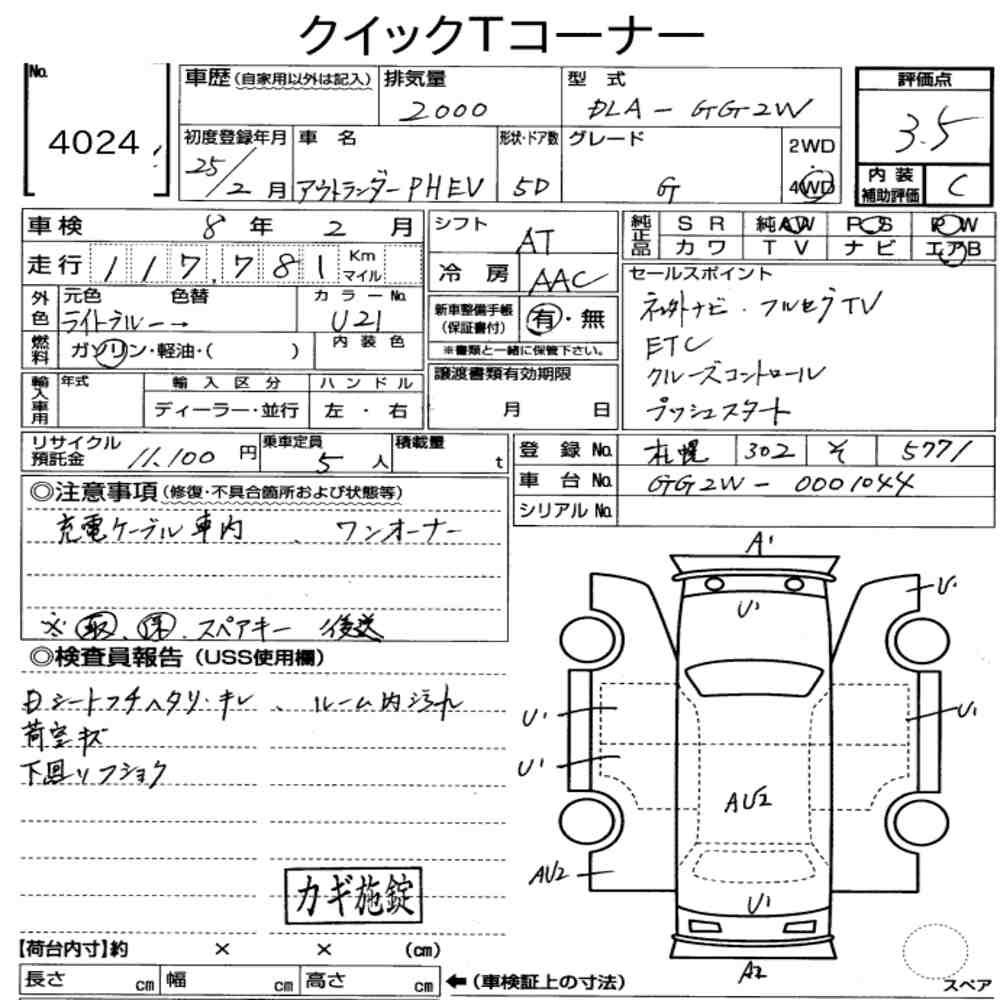 クイックTコーナー
No. 4024
車歴（自家用以外は記入）
排気量 2000
型式 DLA-GG2W
評価点 3.5
初度登録年月 25/2月
車名 アウトランダーPHEV
形状・ドア数 5D
グレード G
2WD
4WD
内装補助評価 C
車検 8年2月
シフト AT
純正品 SR 純AW PS PW
カワ TV ナビ エアB
走行 117,781 Km マイル
冷房 AAC
セールスポイント
外色 元色 色替 カラーNo.
ライトブルー→ U21
新車整備手帳（保証書付） 有・無
※書類と一緒に保管下さい。
ナビ・フルセグTV
ETC
クルーズコントロール
プッシュスタート
燃料 ガソリン・軽油・( )
内装色
譲渡書類有効期限
月 日
輸入車用 年式 輸入区分 ハンドル
ディーラー・並行 左・右
リサイクル預託金 11,100円
乗車定員 5人
積載量 t
登録No. 札幌 302 そ 5771
車台No. GG2W-0001044
シリアルNo.
◎注意事項（修復・不具合箇所および状態等）
充電ケーブル車内、ワンオーナー
※取、保、スペアキー後送
◎検査員報告（USS使用欄）
Dシートフチヘタリ・キレ、ルーム内汚れ
荷室キズ
下回りフショク
カギ施錠
A1
U1
U1
U1
U1
U1
AU2
AU2
U1
A2
スペア
【荷台内寸】約 × × (cm)
長さ cm 幅 cm 高さ cm ←（車検証上の寸法）